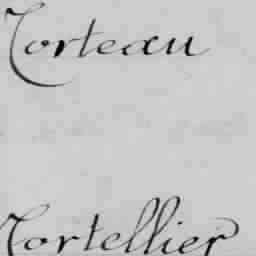 Torteau
Tortellier